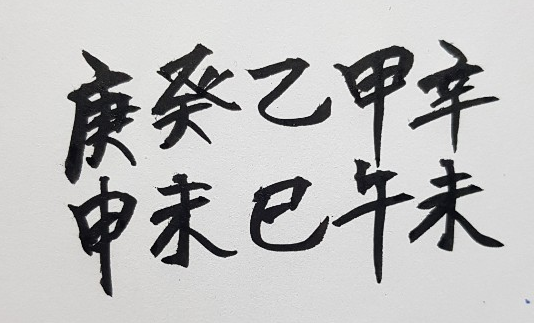 庚癸乙甲辛
申未巳午未